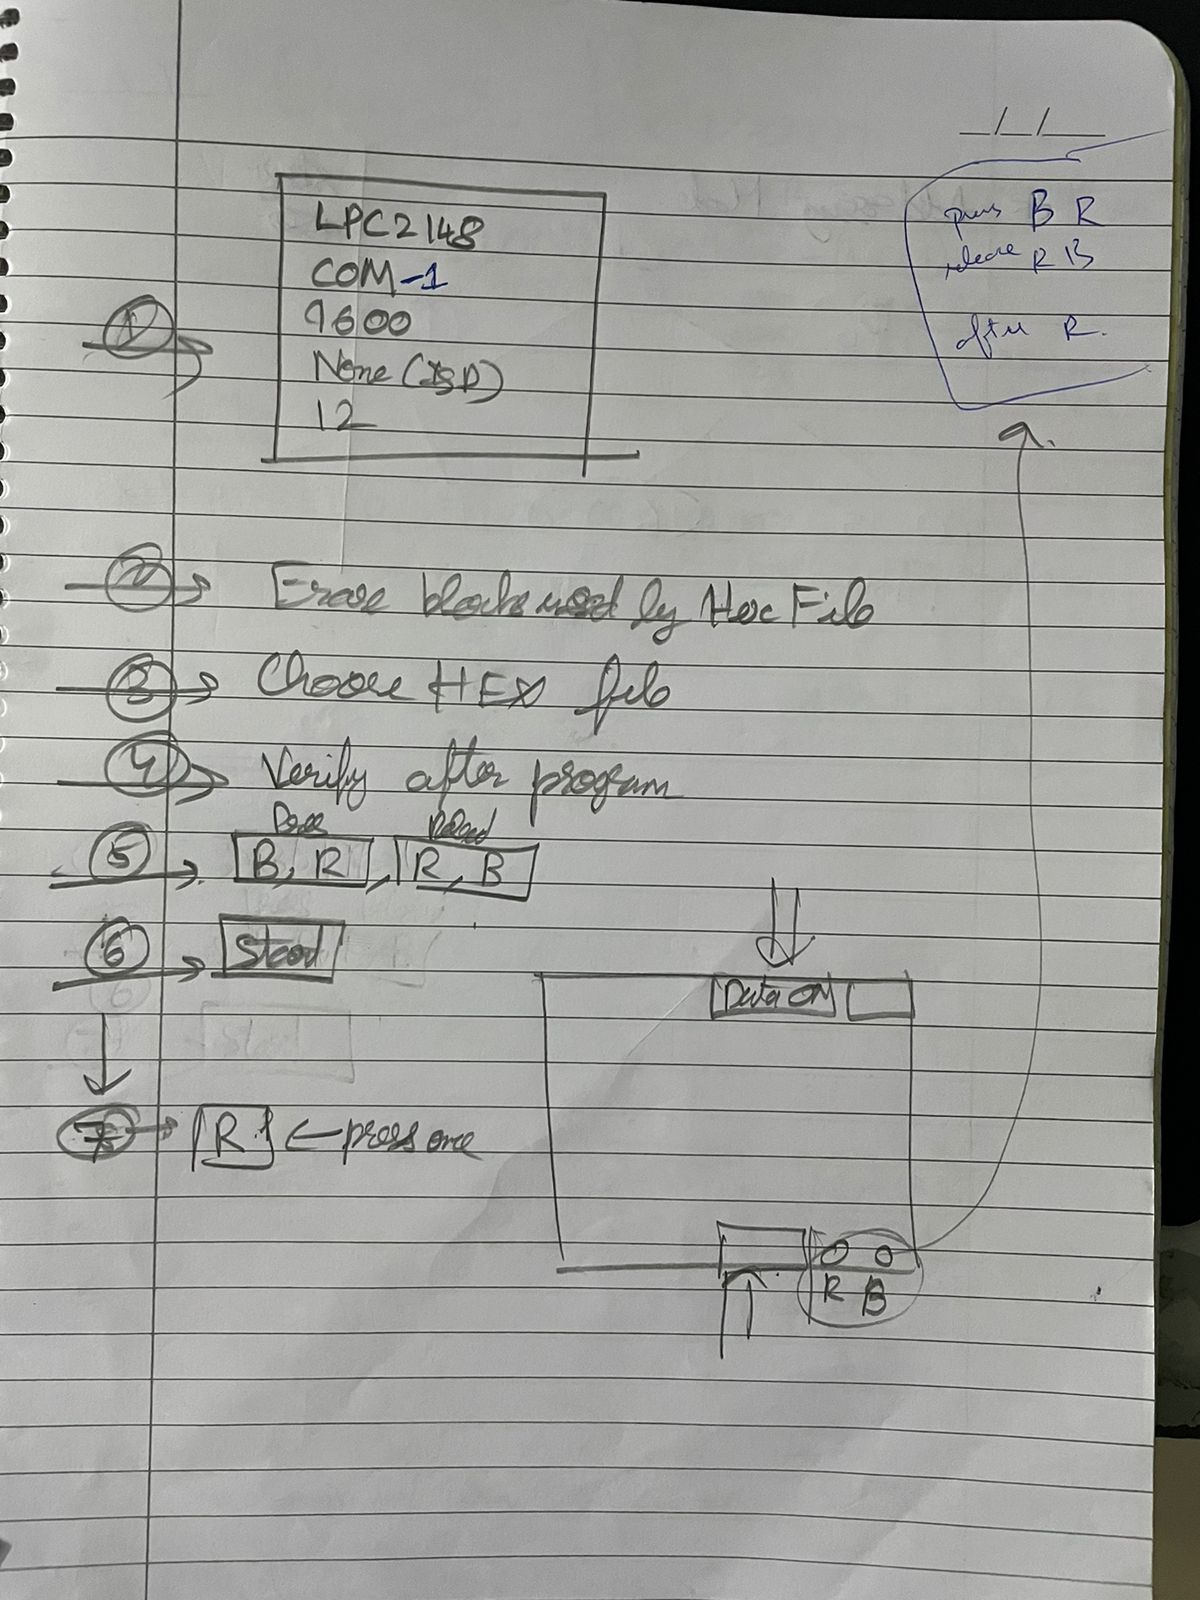 __/__/____
press B R
release R B
after R.
LPC2148
COM-1
9600
None (ISP)
12
1
2 Erase blocks used by Hex File
3 Choose HEX file
4 Verify after program
5 B, R , R, B
6 Start
Data ON
7 R ← press once
R B